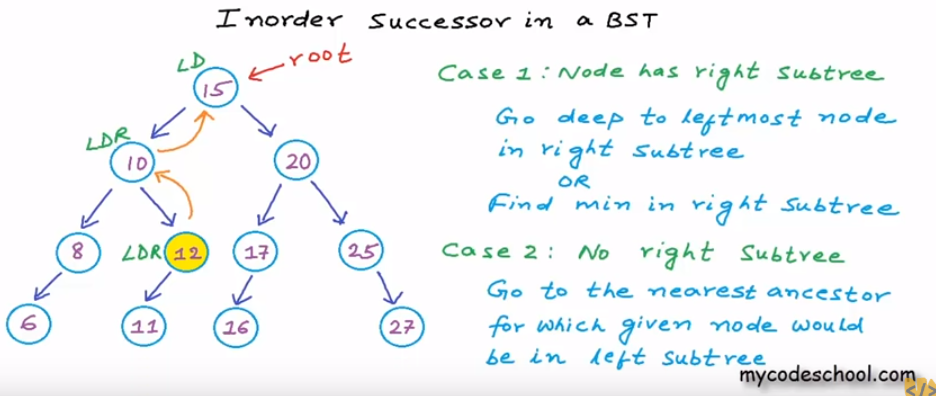 Inorder Successor in a BST
LD
root
15
LDR
10
20
8
LDR
12
17
25
6
11
16
27
Case 1: Node has right subtree
Go deep to leftmost node
in right subtree
OR
Find min in right subtree
Case 2: No right Subtree
Go to the nearest ancestor
for which given node would
be in left subtree
mycodeschool.com
</>